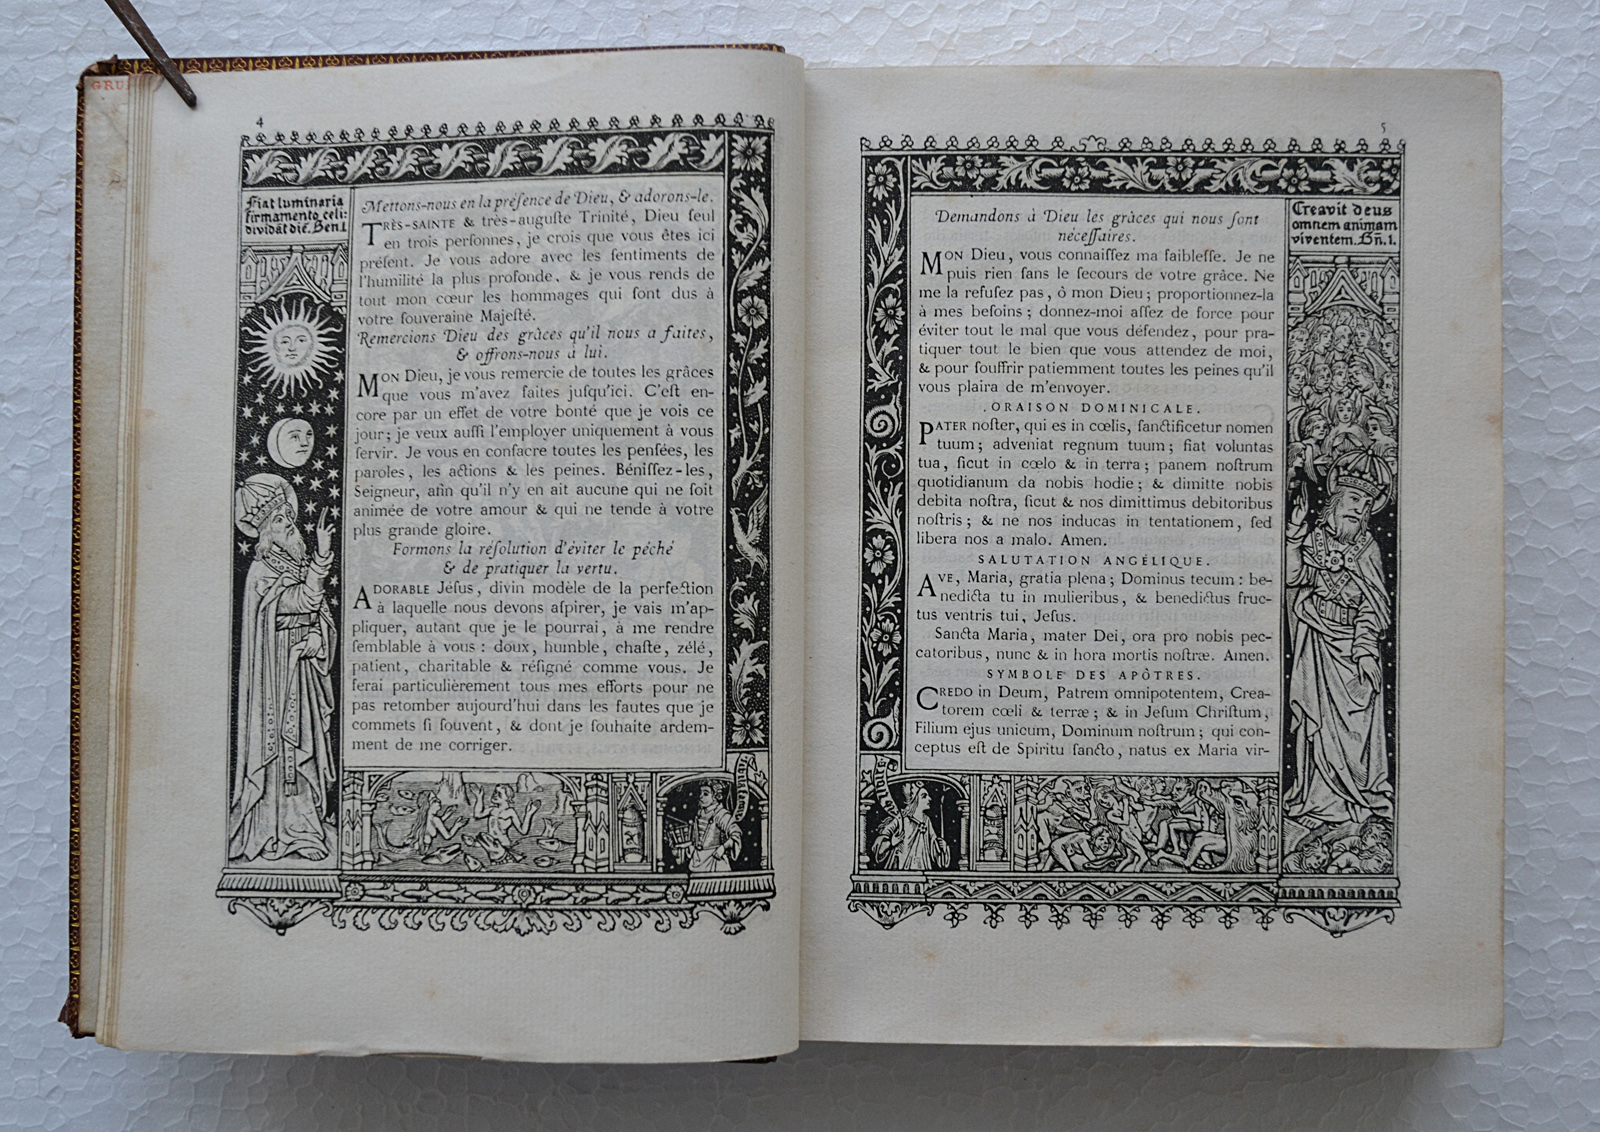 GRU
4
Fiat luminaria
firmamento celi:
dividāt diē. Gen. I.
Mettons-nous en la préſence de Dieu, & adorons-le.
TRÈS-SAINTE & très-auguſte Trinité, Dieu ſeul
en trois perſonnes, je crois que vous êtes ici
préſent. Je vous adore avec les ſentiments de
l'humilité la plus profonde, & je vous rends de
tout mon cœur les hommages qui ſont dus à
votre ſouveraine Majeſté.
Remercions Dieu des grâces qu'il nous a faites,
& offrons-nous à lui.
MON Dieu, je vous remercie de toutes les grâces
que vous m'avez faites juſqu'ici. C'eſt en-
core par un effet de votre bonté que je vois ce
jour; je veux auſſi l'employer uniquement à vous
ſervir. Je vous en conſacre toutes les penſées, les
paroles, les actions & les peines. Béniſſez-les,
Seigneur, afin qu'il n'y en ait aucune qui ne ſoit
animée de votre amour & qui ne tende à votre
plus grande gloire.
Formons la réſolution d'éviter le péché
& de pratiquer la vertu.
ADORABLE Jéſus, divin modèle de la perfection
à laquelle nous devons aſpirer, je vais m'ap-
pliquer, autant que je le pourrai, à me rendre
ſemblable à vous : doux, humble, chaſte, zélé,
patient, charitable & réſigné comme vous. Je
ſerai particulièrement tous mes efforts pour ne
pas retomber aujourd'hui dans les fautes que je
commets ſi ſouvent, & dont je ſouhaite ardem-
ment de me corriger.
5
Demandons à Dieu les grâces qui nous ſont
néceſſaires.
MON Dieu, vous connaiſſez ma faibleſſe. Je ne
puis rien ſans le ſecours de votre grâce. Ne
me la refuſez pas, ô mon Dieu; proportionnez-la
à mes beſoins; donnez-moi aſſez de force pour
éviter tout le mal que vous défendez, pour pra-
tiquer tout le bien que vous attendez de moi,
& pour ſouffrir patiemment toutes les peines qu'il
vous plaira de m'envoyer.
ORAISON DOMINICALE.
PATER noſter, qui es in cœlis, ſanctificetur nomen
tuum; adveniat regnum tuum; fiat voluntas
tua, ſicut in cœlo & in terra; panem noſtrum
quotidianum da nobis hodie; & dimitte nobis
debita noſtra, ſicut & nos dimittimus debitoribus
noſtris; & ne nos inducas in tentationem, ſed
libera nos a malo. Amen.
SALUTATION ANGÉLIQUE.
AVE, Maria, gratia plena; Dominus tecum : be-
nedicta tu in mulieribus, & benedictus fruc-
tus ventris tui, Jeſus.
Sancta Maria, mater Dei, ora pro nobis pec-
catoribus, nunc & in hora mortis noſtræ. Amen.
SYMBOLE DES APÔTRES.
CREDO in Deum, Patrem omnipotentem, Crea-
torem cœli & terræ; & in Jeſum Chriſtum,
Filium ejus unicum, Dominum noſtrum; qui con-
ceptus eſt de Spiritu ſancto, natus ex Maria vir-
Creavit deus
omnem animam
viventem. Gn̄. I.